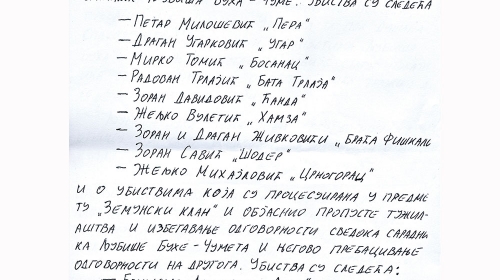 Љубиша Буха - Чуме. Убиства су следећа
– Петар Милошевић „Пера"
– Драган Угарковић „Угар"
– Мирко Томић „Босанац"
– Радован Трлазић „Бата Трлаја"
– Зоран Давидовић „Ћанда"
– Жељко Вулетић „Хамза"
– Зоран и Драган Живковићи „Браћа Фишкали
– Зоран Савић „Шодер"
– Жељко Михајловић „Црногорац"
и о убиствима која су процесуирана у предме
ту „Земунски клан" и објаснио пропусте тужила-
аштва и избегавање одговорности сведока сарадни
ка Љубише Бухе-Чумета и његово пребацивање
одговорности на другога. Убиства су следећа: